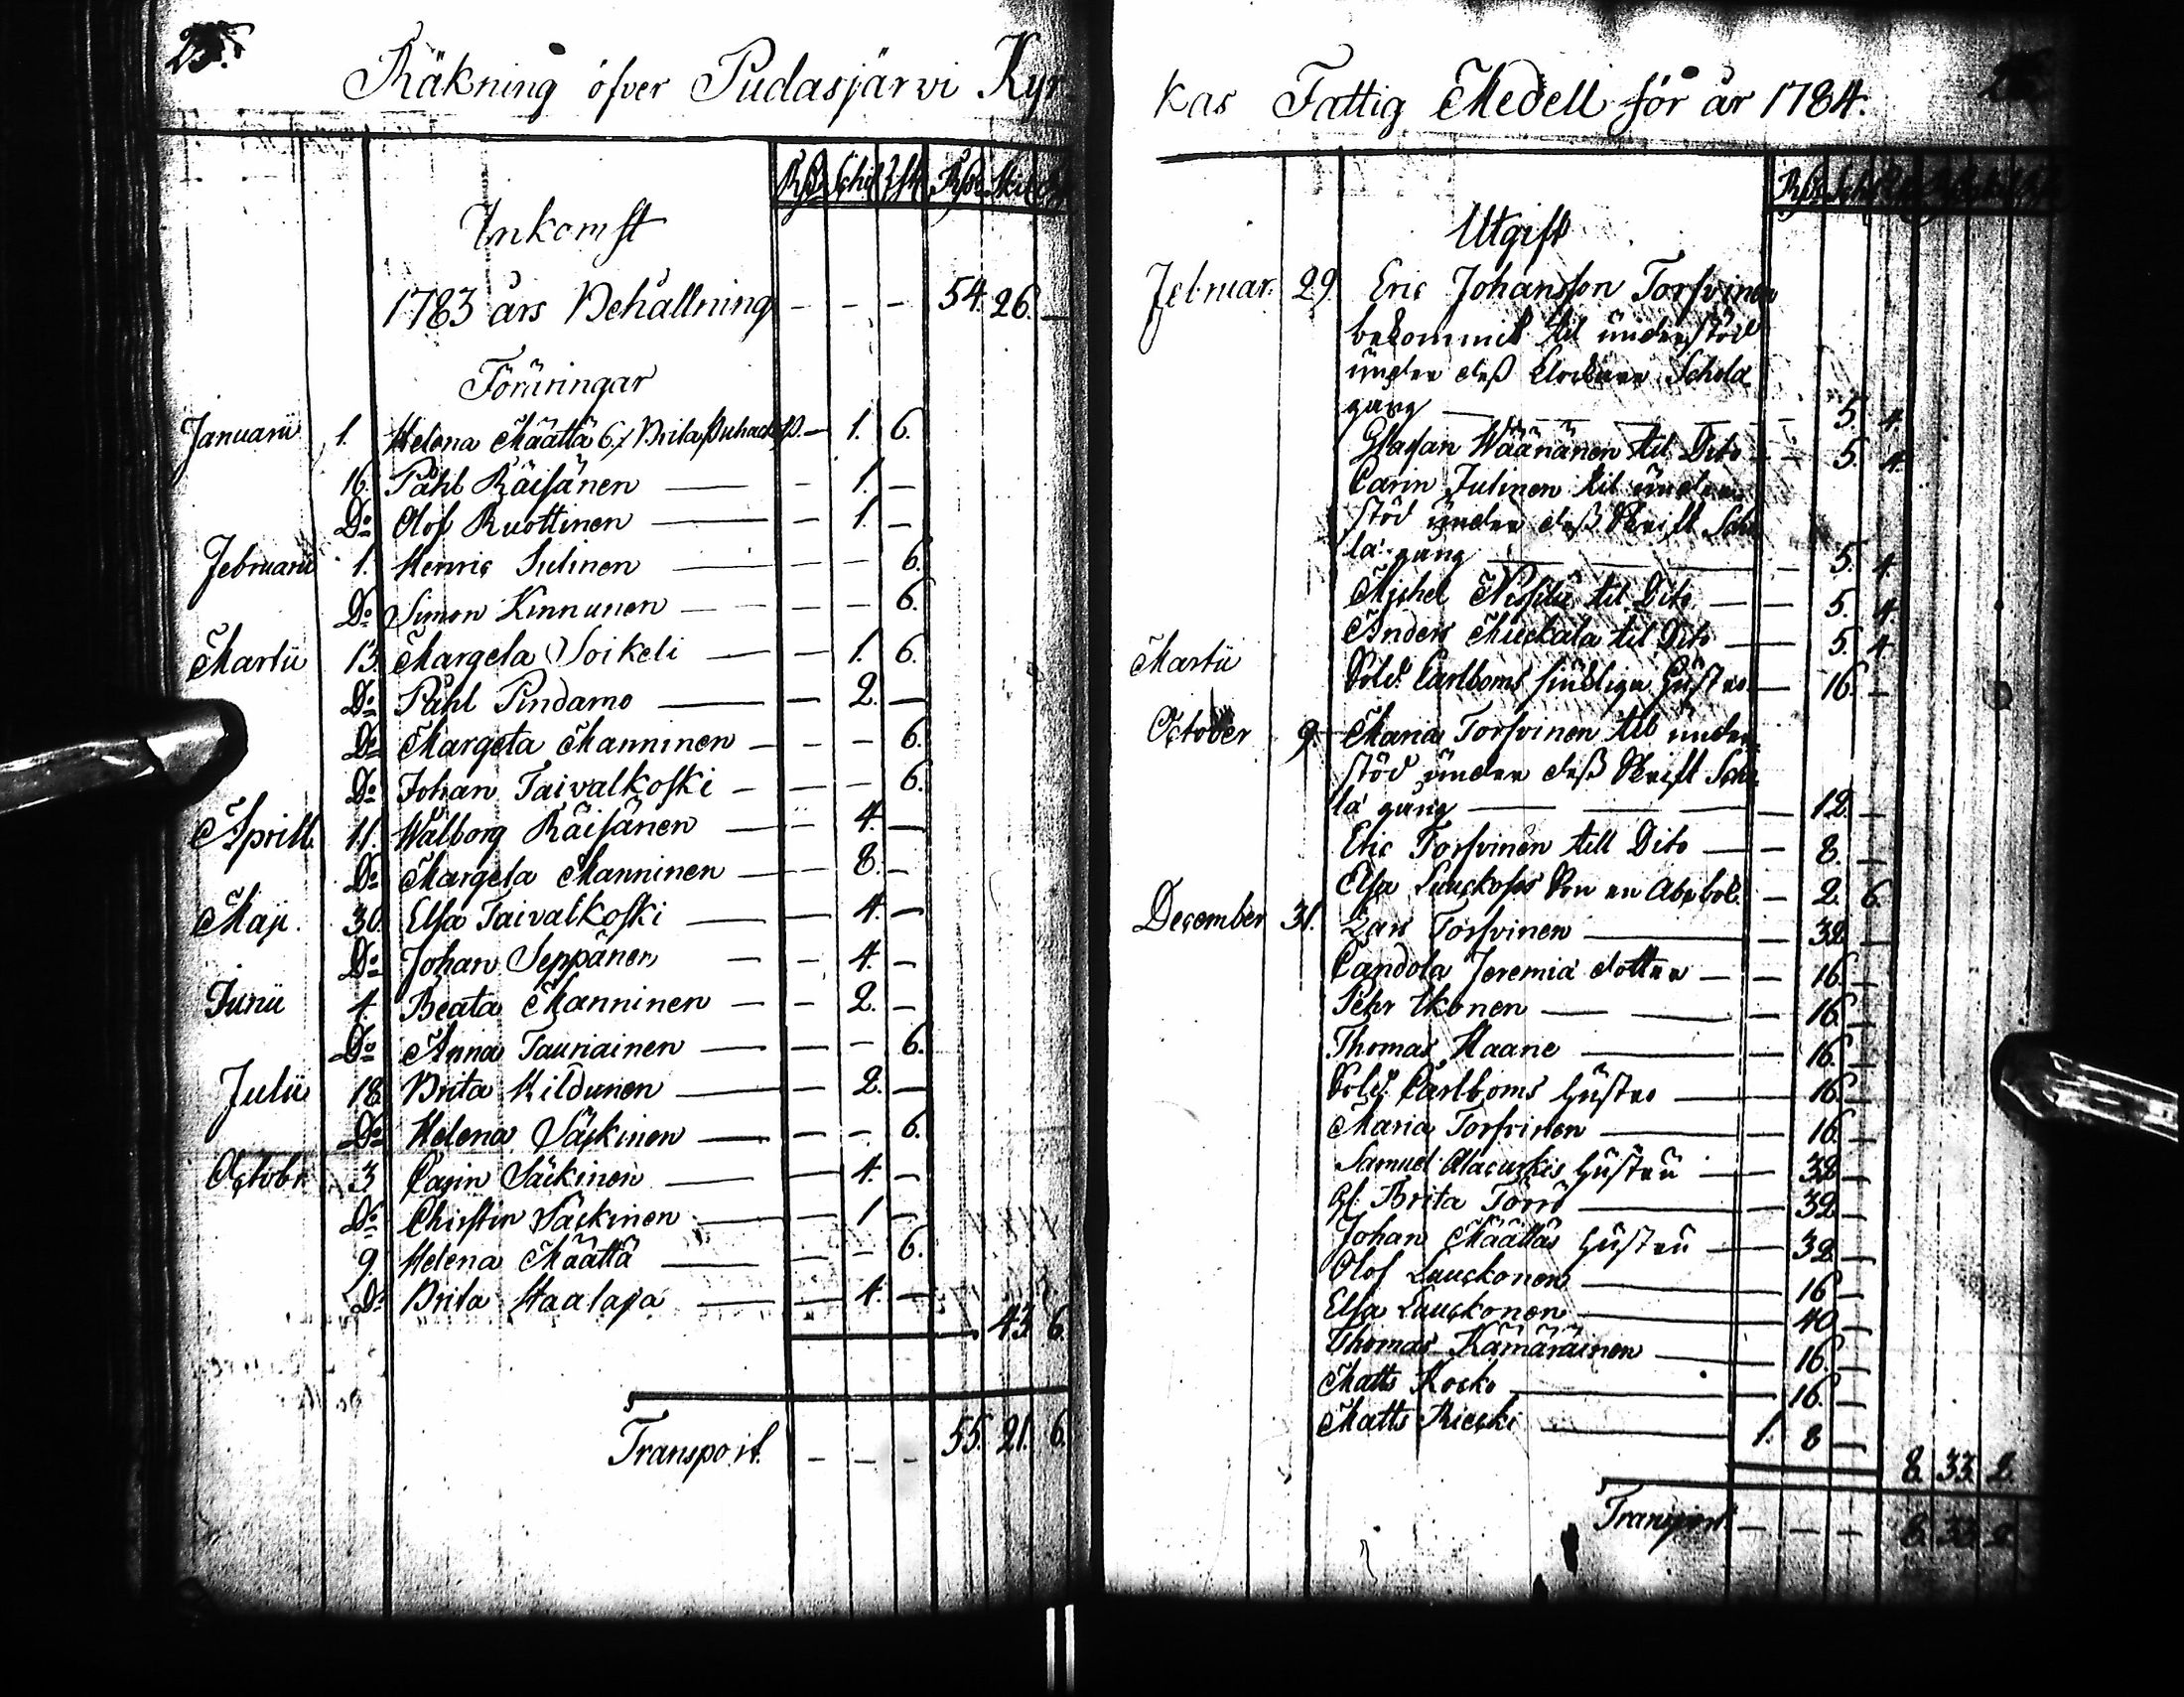 25.
Räkning öfver Pudasjärvi Kyr
Inkomst
1783 års Behållning - - - 54. 26. -
Föräringar
Januarii 1. Helena Määttä 6./ Brita - 1. 6.
16. Påhl Räisänen - 1. -
Do Olof Ruottinen - 1. -
Februarii 1. Henric Julinen - - 6.
Do Simon Kinnunen - - 6.
Martii 13. Margeta Soikeli - 1. 6.
Do Påhl Pindamo - 2. -
Do Margeta Manninen - - 6.
Do Johan Taivalkoski - - 6.
Aprill. 11. Walborg Räisänen - 4. -
Do Margeta Manninen - 8. -
Maji. 30. Elsa Taivalkoski - 4. -
Do Johan Seppänen - 4. -
Junii 4. Beata Manninen - 2. -
Do Anna Tauriainen - - 6.
Julii 18. Brita Hildunen - 2. -
Do Helena Säckinen - - 6.
Octobr. 3 Carin Säckinen - 4. -
Do Christin Säckinen - 1 -
9. Helena Määttä - - 6.
Do Brita Haataja - 4. -
43. 6.
Transport. - - - 55. 21. 6.
kas Fattig Medell för år 1784.
Rdr Sch
Utgift
Februar. 29. Eric Johansson Torfvinen
bekommit til under stöd
under dess Schola
gång - 5. 4.
Wäänänen til Dito - 5. 4.
Carin Julinen til under
stöd under dess Skrift Scho
la gång - 5. 4.
Michel til Dito - 5. 4.
Anders Muckala til Dito - 5. 4
Martii Sold. Carlboms Hustro - 16. -
October 9. Maria Torfvinen til under
stöd under dess Skrift Scho
la gång - 12. -
Eric Torfvinen till Dito - 8. -
Elsa Son en Abcbok - 2. 6.
December 31. Lars Torfvinen - 32 -
Candola Jeremiä dotter - 16. -
Pehr Ikonen - 16. -
Thomas Haane - 16. -
Sold. Carlboms Hustro - 16. -
Maria Torfvinen - 16. -
Samuel Hustru - 32 -
Brita Törrö - 32 -
Johan Määttäs Hustru - 32 -
Olof Lauckonen - 16 -
Elsa Lauckonen - 40 -
Thomas Kämäräinen - 16. -
Matts Kocko - 16. -
Matts Riecki 1. 8 -
8. 33. 2.
Transport. - - - 8. 33. 2.